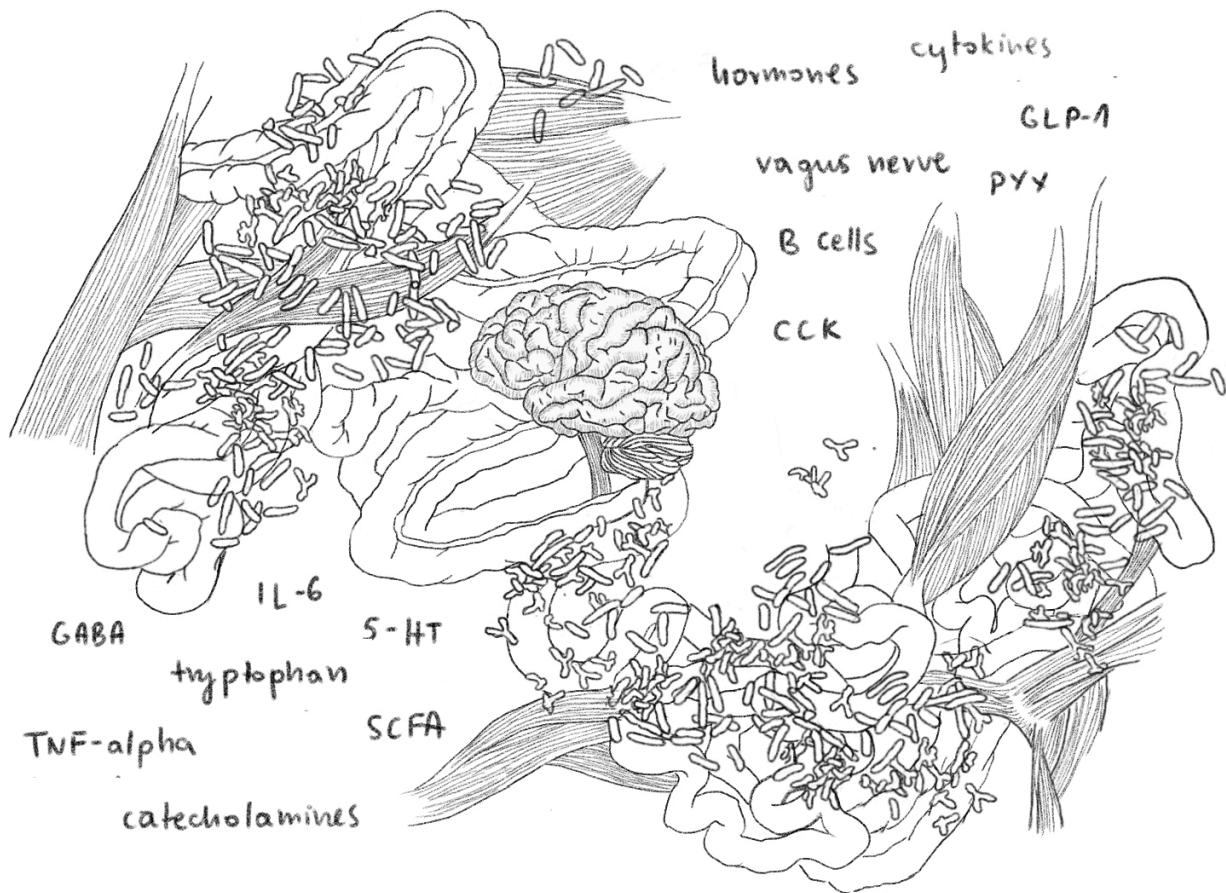 cytokines
hormones
GLP-1
vagus nerve
PYY
B cells
CCK
IL-6
GABA
5-HT
tryptophan
SCFA
TNF-alpha
catecholamines